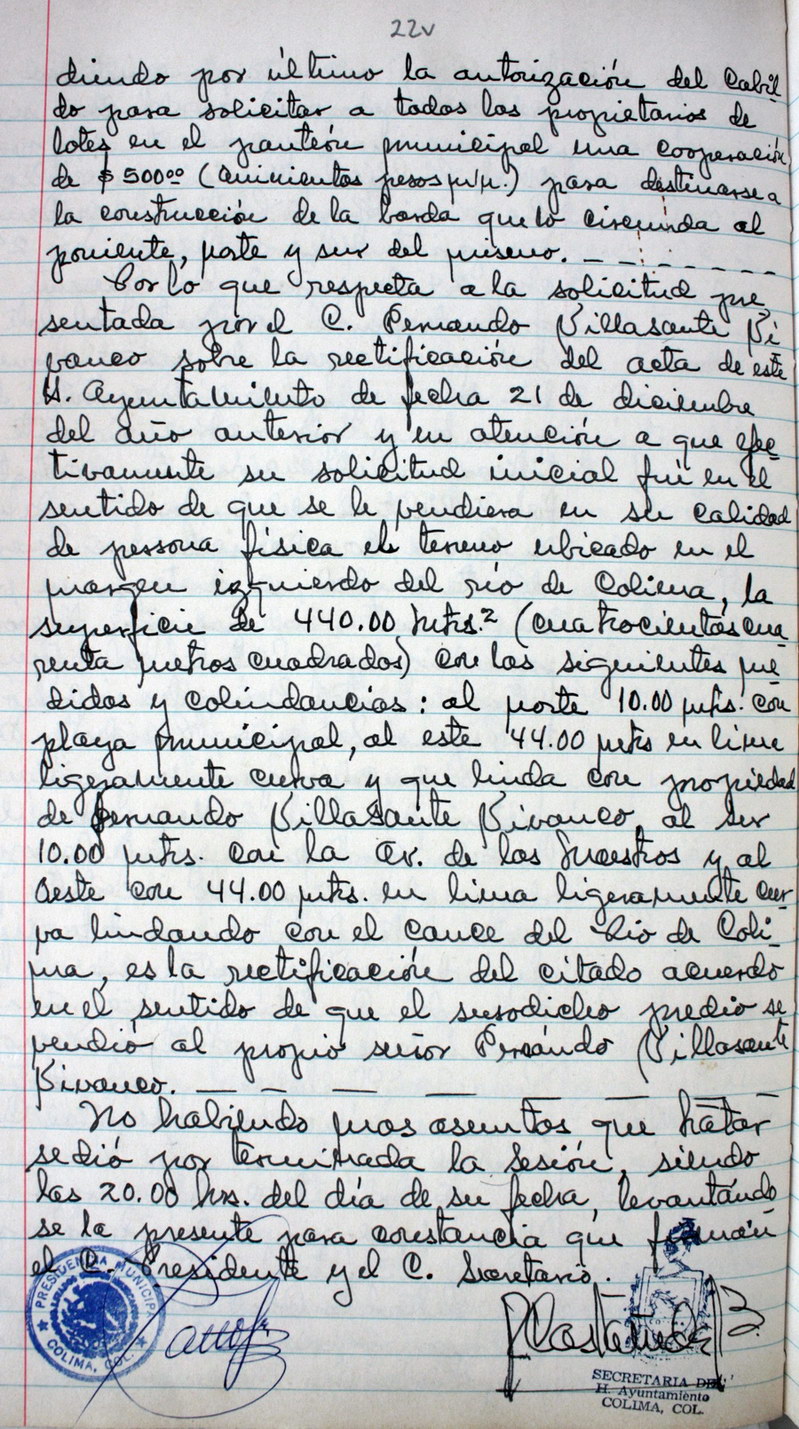 22v
diendo por último la autorización del Cabil
do para solicitar a todos los propietarios de
lotes en el panteón municipal una cooperación
de $500.00 (Quinientos pesos m/n.) para destinarse a
la construcción de la barda que lo circunda al
poniente, norte y sur del mismo. _ _ _ _ _ _ _
Por lo que respecta a la solicitud pre
sentada por el C. Fernando Villasante Vi
vanco sobre la rectificación del acta de este
H. Ayuntamiento de fecha 21 de diciembre
del año anterior y en atención a que efec
tivamente su solicitud inicial fué en el
sentido de que se le vendiera en su calidad
de persona física el terreno ubicado en el
margen izquierdo del río de Colima, la
superficie de 440.00 mtrs.² (cuatrocientos cua
renta metros cuadrados) con las siguientes me
didas y colindancias: al norte 10.00 mts. con
playa municipal, al este 44.00 mts en linea
ligeramente curva y que linda con propiedad
de Fernando Villasante Vivanco, al sur
10.00 mts. con la Av. de los Maestros y al
oeste con 44.00 mts. en linea ligeramente cur-
va lindando con el cauce del Rio de Coli-
ma, es la rectificación del citado acuerdo
en el sentido de que el susodicho predio se
vendió al propio señor Fernándo Villasante
Vivanco. _ _ _ _ _ _ _
No habiendo mas asuntos que tratar
se dió por terminada la sesión, siendo
las 20.00 hrs. del día de su fecha, levantándo
se la presente para constancia que firman
el C. Presidente y el C. Secretario.
PRESIDENCIA MUNICIPAL
COLIMA, COL.
SECRETARIA DEL
H. Ayuntamiento
COLIMA, COL.